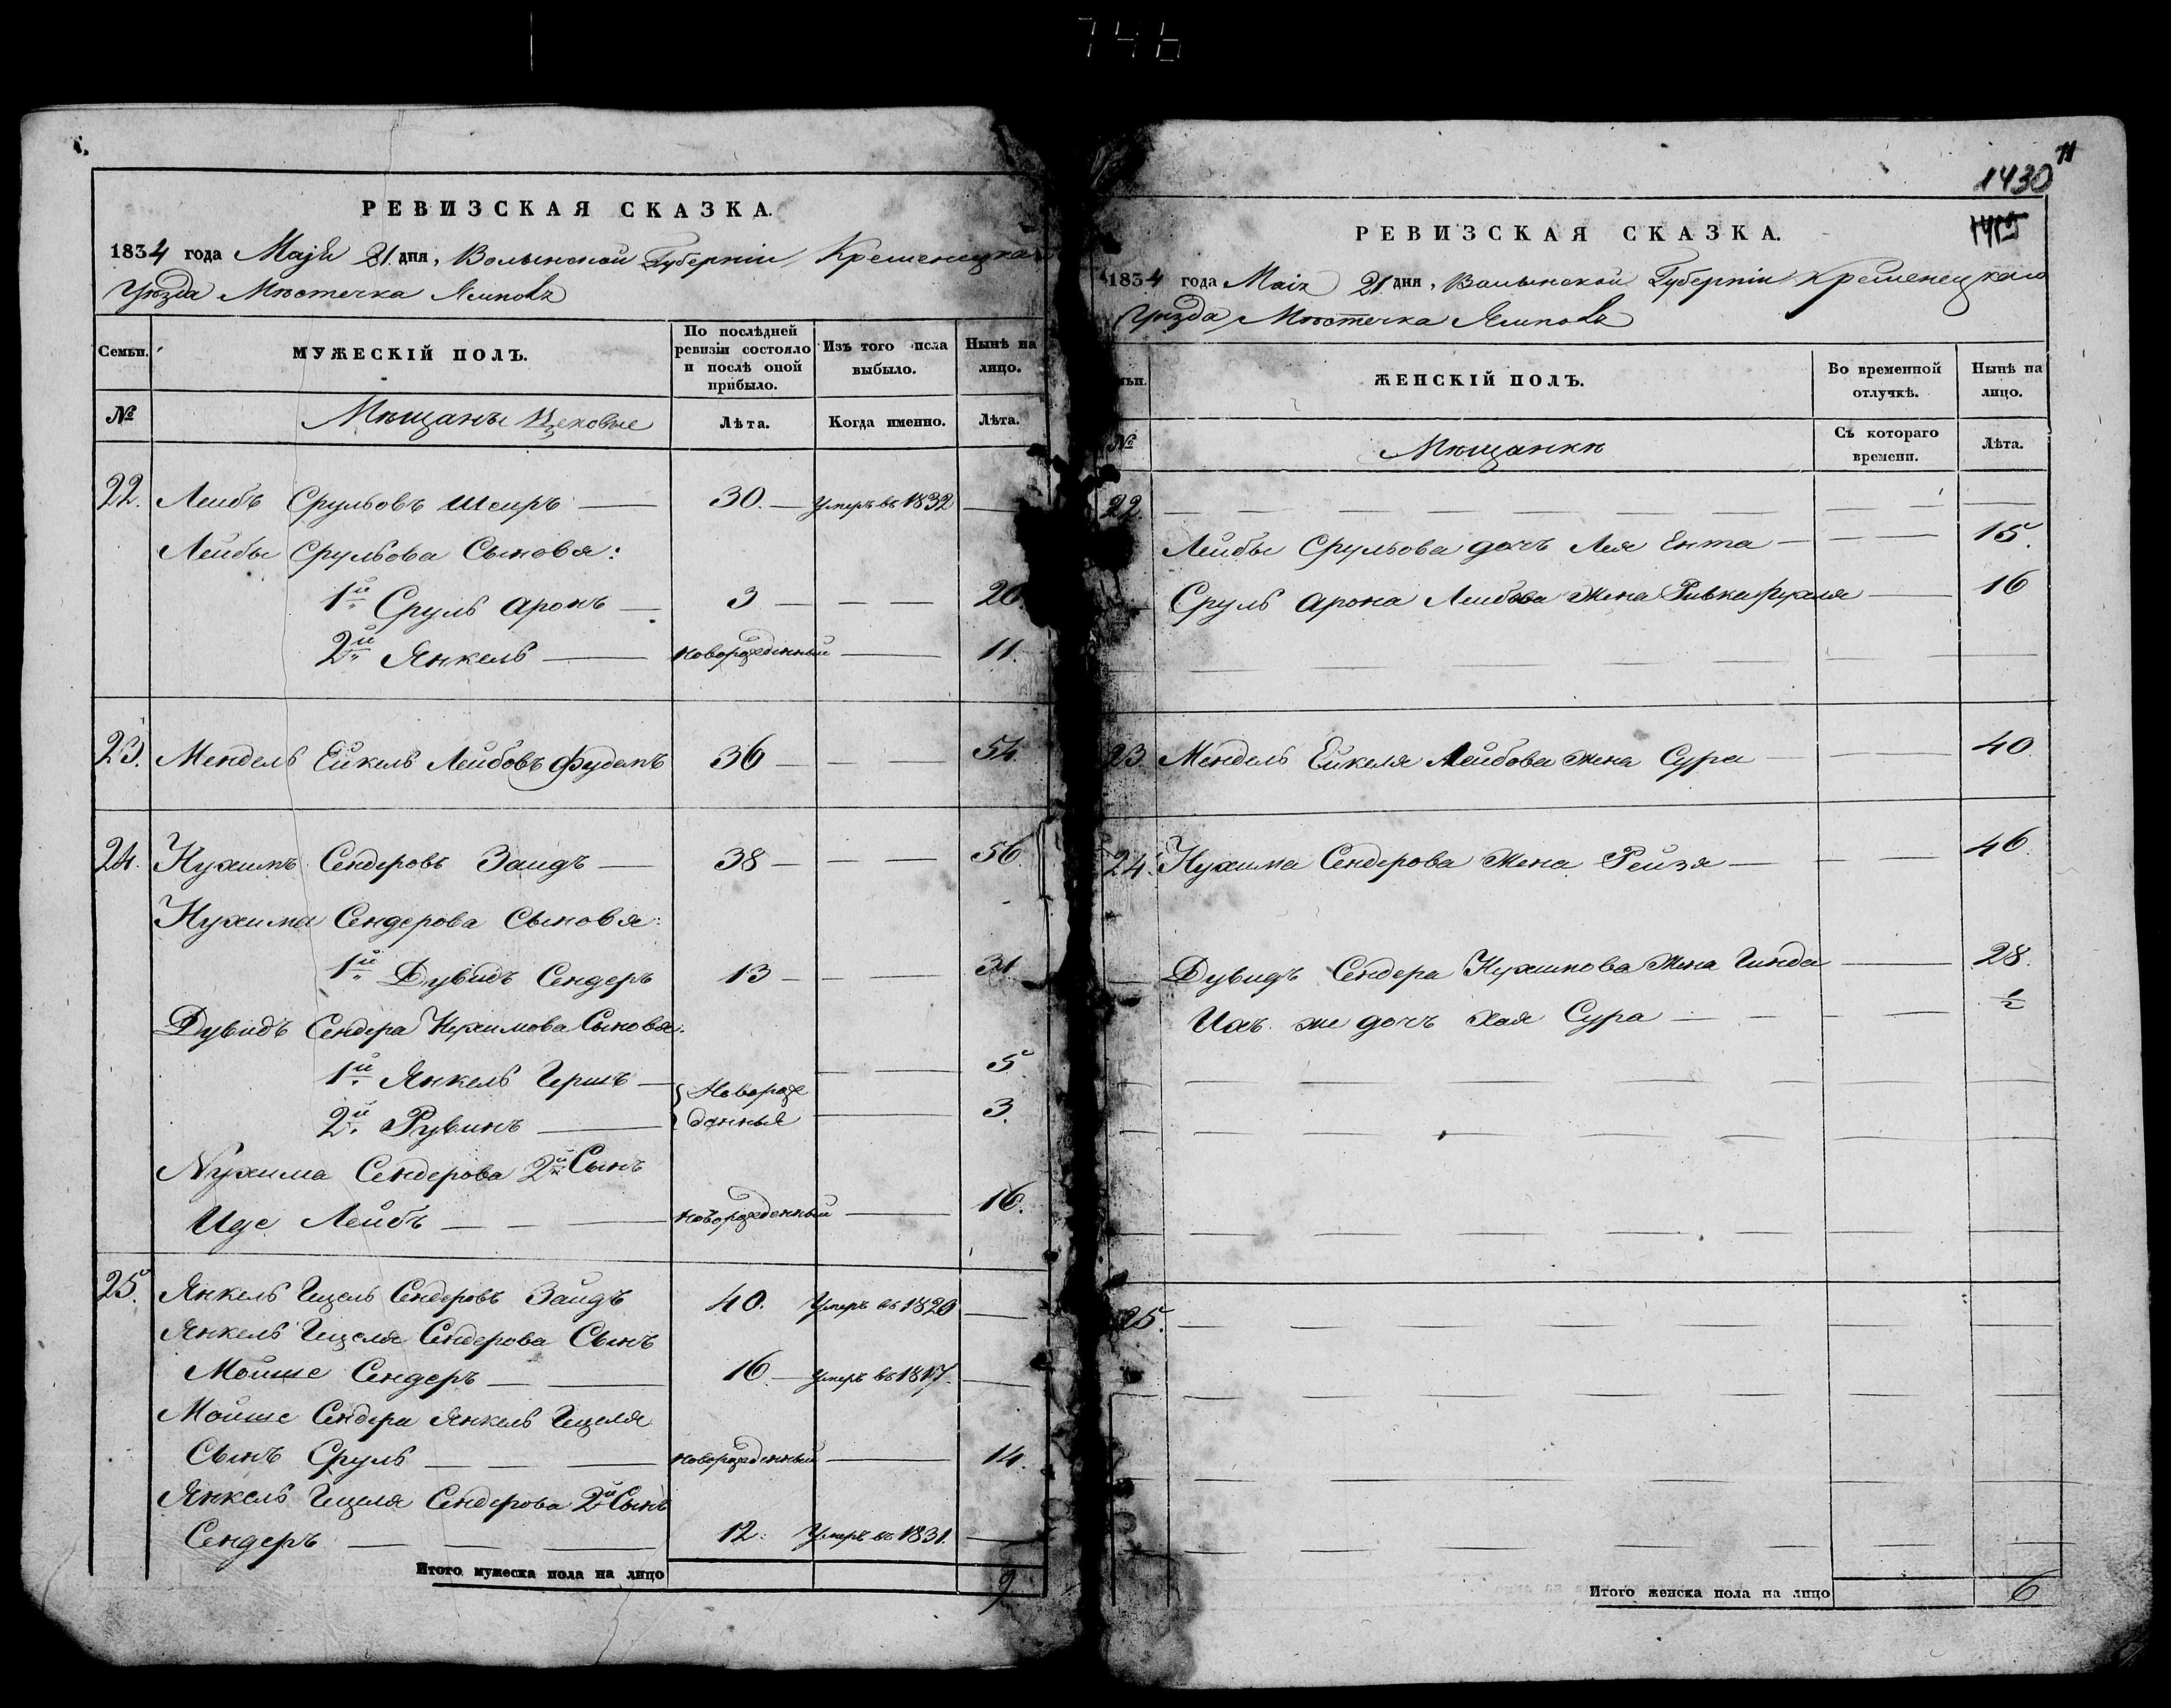 746
РЕВИЗСКАЯ СКАЗКА.
1834 года Маія 21 дня, Волынской Губерніи Кременецкаго
Уѣзда Мѣстечка Ямполь
Семьи.
МУЖЕСКІЙ ПОЛЪ.
По послѣдней ревизіи состояло и послѣ оной прибыло.
Изъ того числа выбыло.
Нынѣ на лицо.
№
Мѣщанъ Цеховые
Лѣта.
Когда именно.
Лѣта.
22. Лейбъ Срульовъ Шеиръ — 30. — Умеръ въ 1832 —
Лейбы Срульова Сыновя:
1й Сруль Аронъ — 3 — — — 20.
2й Янкель — новорожденный — 11.
23. Мендель Ейкель Лейбовъ 36 — — — 54
24. Нухимъ Сендеровъ Заидъ — 38 — — — 56
Нухима Сендерова Сыновя:
1й Дувидъ Сендеръ 13 — — — 31
Дувидъ Сендера Нухимова Сыновя:
1й Янкель Гершъ — — 5
2й Рувинъ — Новорож — 3.
данныя
Нухима Сендерова 2й Сынъ
Иде Лейбъ — — — новорожденный — 16.
25. Янкель Гецель Сендеровъ Заидъ 40. Умеръ въ 1820 —
Янкель Гецеля Сендерова Сынъ
Мойше Сендеръ — — 16. — Умеръ въ 1817. —
Мойше Сендера Янкель Гецеля
Сынъ Сруль — — — новорожденный — 14.
Янкель Гецеля Сендерова 2й Сынъ
Сендеръ — — — 12: Умеръ въ 1831. —
Итого мужеска пола на лицо 9
11
1430
1419
РЕВИЗСКАЯ СКАЗКА.
1834 года Маія 21 дня, Волынской Губерніи Кременецкого
Уѣзда Мѣстечка Ямполь
ЖЕНСКІЙ ПОЛЪ.
Во временной отлучкѣ.
Нынѣ на лицо.
№
Мѣщанки
Съ котораго времени.
Лѣта.
22. — — — — — — — —
Лейбы Срульова дочъ Лея Ента — — — 15.
Сруль Арона Лейбова жена Ривка Рухля — 16
23 Мендель Ейкеля Лейбова жена Сура — — — 40
24. Нухима Сендерова жена Рейзя — — — 46
Дувидъ Сендера Нухимова жена Гинда — 28.
Ихъ же дочъ Хая Сура — — — — 1/2
25. — — — — — — — —
Итого женска пола на лицо 6